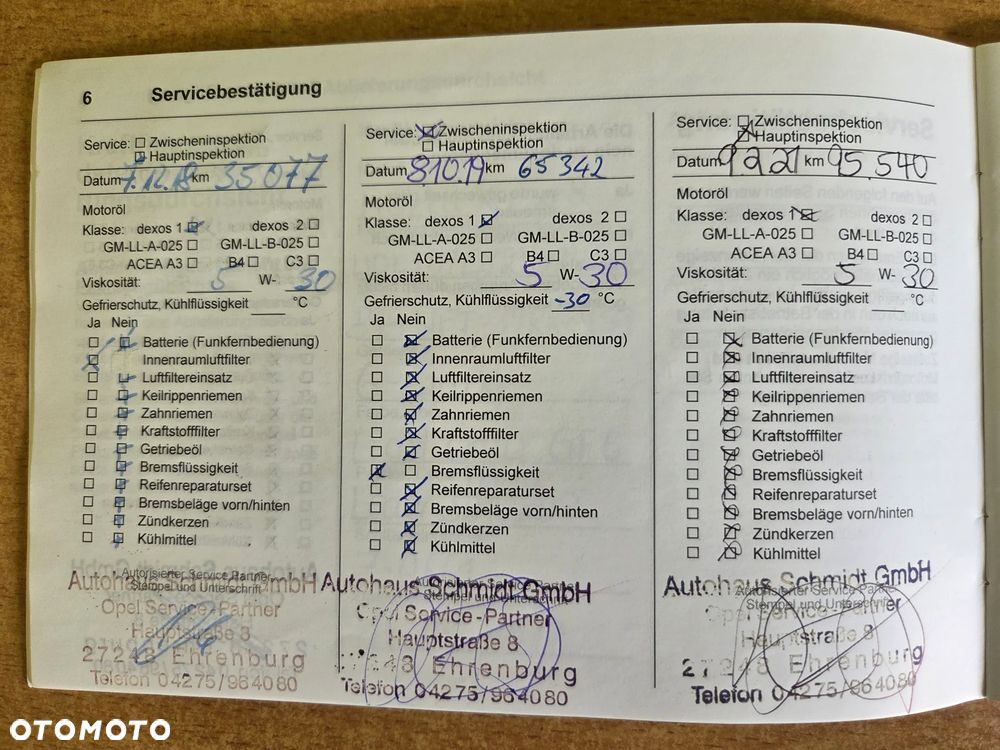 6 Servicebestätigung
Service: Zwischeninspektion
Hauptinspektion
Datum 7.12.18 km 35077
Motoröl
Klasse: dexos 1 dexos 2
GM-LL-A-025 GM-LL-B-025
ACEA A3 B4 C3
Viskosität: 5 W- 30
Gefrierschutz, Kühlflüssigkeit °C
Ja Nein
Batterie (Funkfernbedienung)
Innenraumluftfilter
Luftfiltereinsatz
Keilrippenriemen
Zahnriemen
Kraftstofffilter
Getriebeöl
Bremsflüssigkeit
Reifenreparaturset
Bremsbeläge vorn/hinten
Zündkerzen
Kühlmittel
Autorisierter Service Partner
Stempel und Unterschrift
Autohaus Schmidt GmbH
Opel Service-Partner
Hauptstraße 8
27248 Ehrenburg
Telefon 04275/964080
Service: Zwischeninspektion
Hauptinspektion
Datum 81019 km 65342
Motoröl
Klasse: dexos 1 dexos 2
GM-LL-A-025 GM-LL-B-025
ACEA A3 B4 C3
Viskosität: 5 W- 30
Gefrierschutz, Kühlflüssigkeit -30 °C
Ja Nein
Batterie (Funkfernbedienung)
Innenraumluftfilter
Luftfiltereinsatz
Keilrippenriemen
Zahnriemen
Kraftstofffilter
Getriebeöl
Bremsflüssigkeit
Reifenreparaturset
Bremsbeläge vorn/hinten
Zündkerzen
Kühlmittel
Autorisierter Service Partner
Stempel und Unterschrift
Autohaus Schmidt GmbH
Opel Service-Partner
Hauptstraße 8
27248 Ehrenburg
Telefon 04275/964080
Service: Zwischeninspektion
Hauptinspektion
Datum 9221 km 95.540
Motoröl
Klasse: dexos 1 dexos 2
GM-LL-A-025 GM-LL-B-025
ACEA A3 B4 C3
Viskosität: 5 W- 30
Gefrierschutz, Kühlflüssigkeit °C
Ja Nein
Batterie (Funkfernbedienung)
Innenraumluftfilter
Luftfiltereinsatz
Keilrippenriemen
Zahnriemen
Kraftstofffilter
Getriebeöl
Bremsflüssigkeit
Reifenreparaturset
Bremsbeläge vorn/hinten
Zündkerzen
Kühlmittel
Autorisierter Service Partner
Stempel und Unterschrift
Autohaus Schmidt GmbH
Opel Service-Partner
Hauptstraße 8
27248 Ehrenburg
Telefon 04275/964080
OTOMOTO